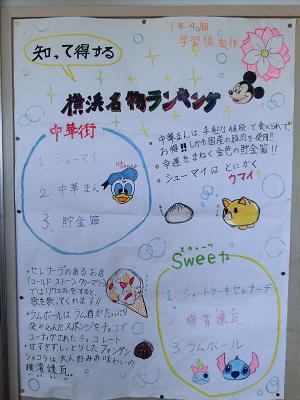 1年4組
学習係 製作
知って得する
横浜名物ランキング
中華街
1. シューマイ
2. 中華まん
3. 貯金箱
・中華まんは、手軽な値段で食べられて、
お得!!しかも国産の豚肉を使用!!
・幸運をまねく金色の貯金箱!!
・シューマイは とにかく
ウマイ!!
スウィーツ
Sweet
1. ショートケーキセレナーデ
2. 横濱煉瓦
3. ラムボール
・セレナーデのあるお店
(コールド・ストーン・クリーマリー)
ではリクエストをすると
歌を歌ってくれます!!
・ラムボールは ラム酒がたっぷり
染み込んだスポンジをチョコで
コーティングされたチョコレート
・甘すぎずしっとりしたフォンダン
ショコラは大人好みの味わいの
横濱煉瓦